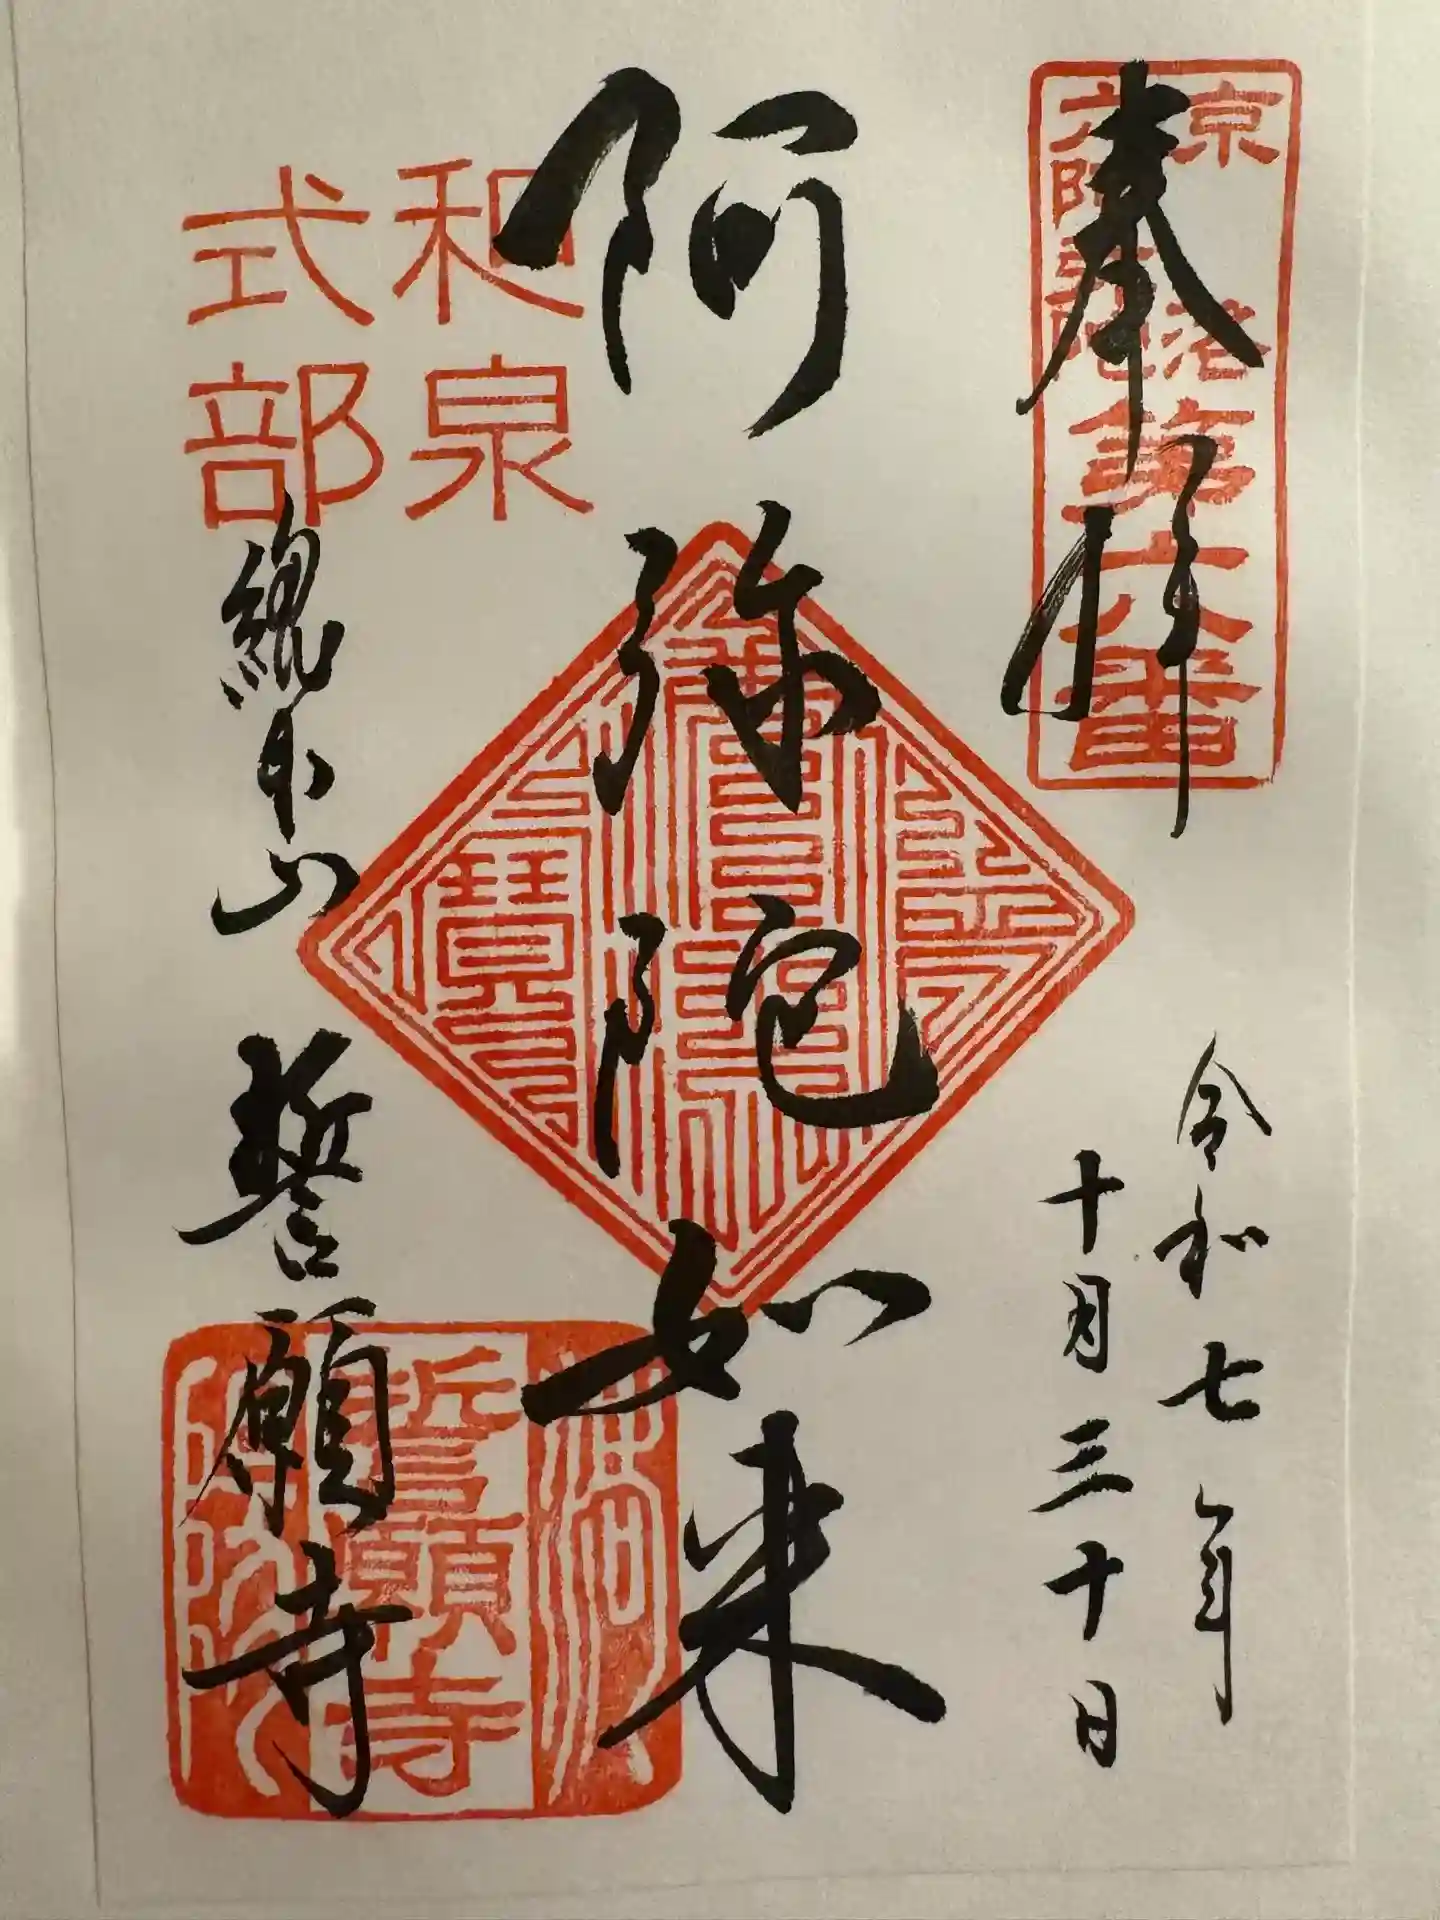 奉拝
京洛
六阿弥陀
第六番
令和七年
十月三十日
阿弥陀如来
和泉
式部
總本山 誓願寺
誓願寺